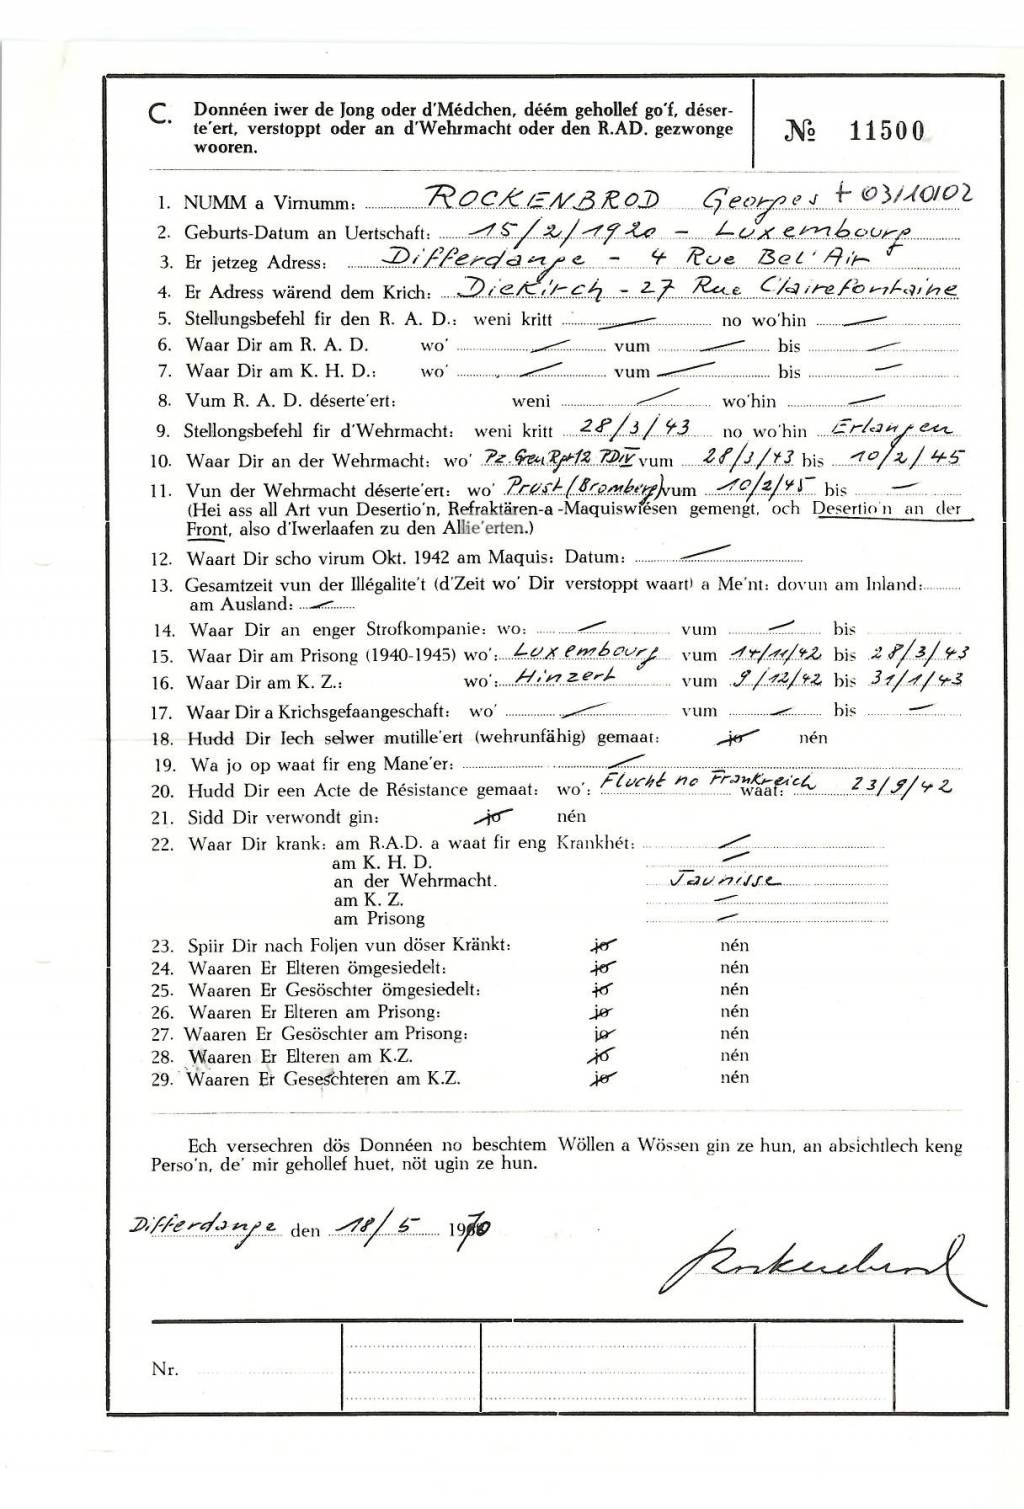 C. Donnéen iwer de Jong oder d'Médchen, déém gehollef go'f, déser-
te'ert, verstoppt oder an d'Wehrmacht oder den R.AD. gezwonge
wooren.
№ 11500
1. NUMM a Virnumm: ROCKENBROD Georges + 03/10/02
2. Geburts-Datum an Uertschaft: 15/2/1920 - Luxembourg
3. Er jetzeg Adress: Differdange - 4 Rue Bel'Air
4. Er Adress wärend dem Krich: Diekirch - 27 Rue Clairefontaine
5. Stellungsbefehl fir den R. A. D.: weni kritt — no wo'hin —
6. Waar Dir am R. A. D. wo' — vum — bis —
7. Waar Dir am K. H. D.: wo' — vum — bis —
8. Vum R. A. D. déserte'ert: weni — wo'hin —
9. Stellongsbefehl fir d'Wehrmacht: weni kritt 28/3/43 no wo'hin Erlangen
10. Waar Dir an der Wehrmacht: wo' Pz. Gren Rgt 12 PDIV vum 28/3/43 bis 10/2/45
11. Vun der Wehrmacht déserte'ert: wo' Prust (Bromberg) vum 10/2/45 bis —
(Hei ass all Art vun Desertio'n, Refraktären-a-Maquiswiesen gemengt, och Desertio'n an der
Front, also d'Iwerlaafen zu den Allie'erten.)
12. Waart Dir scho virum Okt. 1942 am Maquis: Datum: —
13. Gesamtzeit vun der Illégalite't (d'Zeit wo' Dir verstoppt waart) a Me'nt: dovun am Inland:
am Ausland: —
14. Waar Dir an enger Strofkompanie: wo: — vum — bis
15. Waar Dir am Prisong (1940-1945) wo': Luxembourg vum 14/11/42 bis 28/3/43
16. Waar Dir am K. Z.: wo': Hinzert vum 9/12/42 bis 31/1/43
17. Waar Dir a Krichsgefaangeschaft: wo' — vum — bis —
18. Hudd Dir Iech selwer mutille'ert (wehrunfähig) gemaat: jo nén
19. Wa jo op waat fir eng Mane'er: —
20. Hudd Dir een Acte de Résistance gemaat: wo': Flucht no Frankreich waat: 23/9/42
21. Sidd Dir verwondt gin: jo nén
22. Waar Dir krank: am R.A.D. a waat fir eng Krankhét: —
am K. H. D. —
an der Wehrmacht. Jaunisse
am K. Z. —
am Prisong —
23. Spiir Dir nach Foljen vun döser Kränkt: jo nén
24. Waaren Er Elteren ömgesiedelt: jo nén
25. Waaren Er Gesöschter ömgesiedelt: jo nén
26. Waaren Er Elteren am Prisong: jo nén
27. Waaren Er Gesöschter am Prisong: jo nén
28. Waaren Er Elteren am K.Z. jo nén
29. Waaren Er Geseschteren am K.Z. jo nén
Ech versechren dös Donnéen no beschtem Wöllen a Wössen gin ze hun, an absichtlech keng
Perso'n, de' mir gehollef huet, nöt ugin ze hun.
Differdange den 18/5 1970
Rockenbrod
Nr.